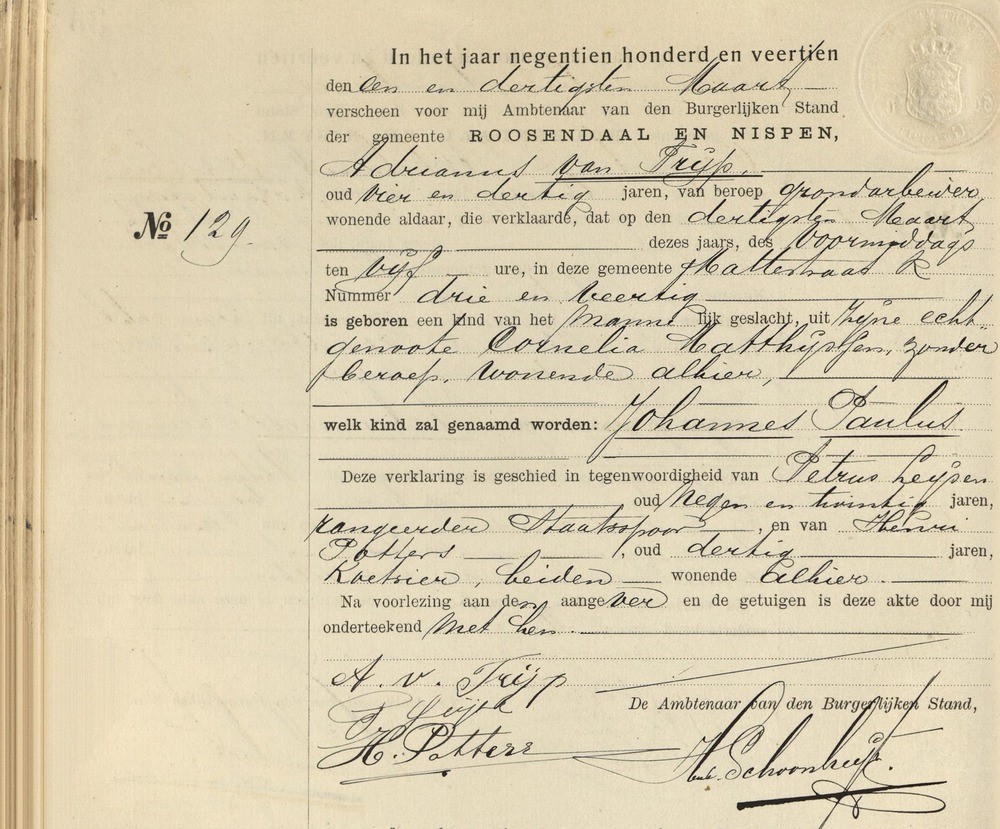 In het jaar negentien honderd en veertien
den een en dertigsten Maart
verscheen voor mij Ambtenaar van den Burgerlijken Stand
der gemeente ROOSENDAAL EN NISPEN,
Adrianus van Trijp,
oud vier en dertig jaren, van beroep grondarbeider
wonende aldaar, die verklaarde, dat op den dertigsten Maart
No 129.
dezes jaars, des voormiddags
ten vijf ure, in deze gemeente
Nummer drie en veertig
is geboren een kind van het manne lijk geslacht, uit zijne echt-
genoote Cornelia Matthijssen, zonder
beroep, wonende alhier,
welk kind zal genaamd worden: Johannes Paulus
Deze verklaring is geschied in tegenwoordigheid van Petrus Leijsen
oud negen en twintig jaren,
rangeerder Staatsspoor, en van Henri
Potters, oud dertig jaren,
Koetsier, beiden wonende alhier.
Na voorlezing aan den aangever en de getuigen is deze akte door mij
onderteekend met hen.
A. v. Trijp
De Ambtenaar van den Burgerlijken Stand,
P
H. Potters
Schoonheijt.